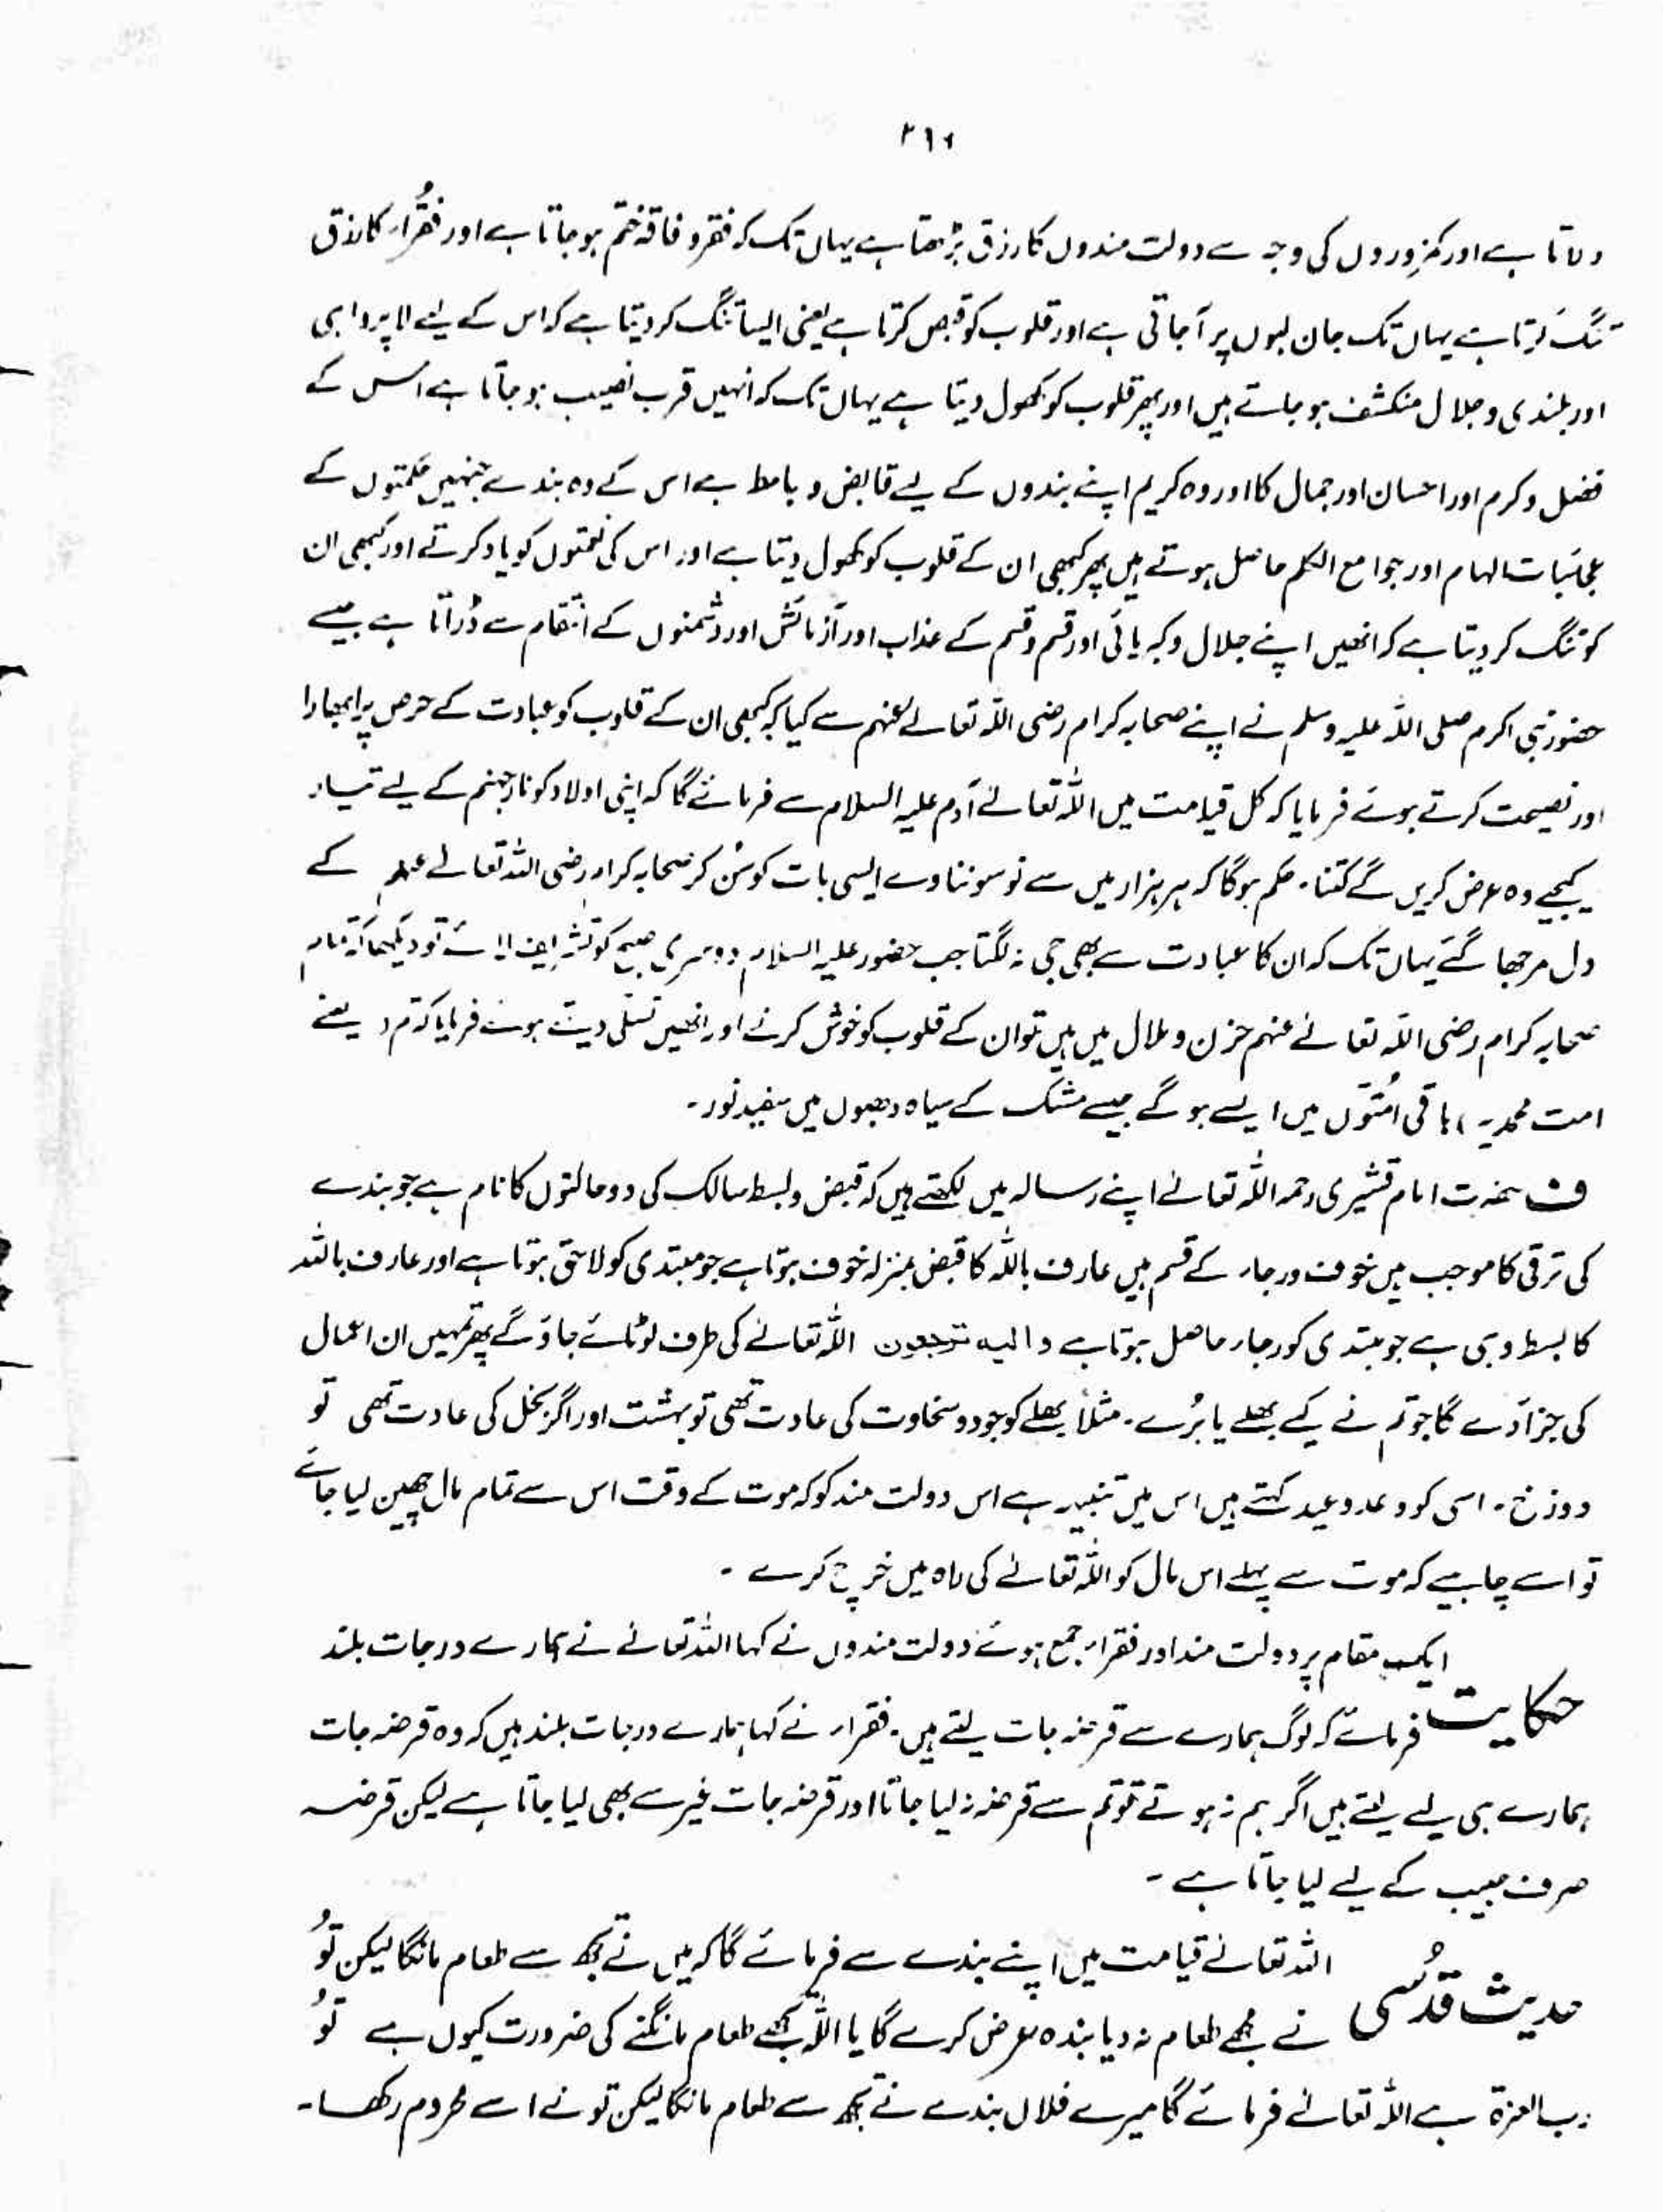 ۲۱۶
دلاتا ہے اور کمزوروں کی وجہ سے دولت مندوں کا رزق بڑھتا ہے یہاں تک کہ فقر و فاقہ ختم ہو جاتا ہے اور فقُراء کا رزق
تنگ کرتا ہے یہاں تک جان لبوں پر آ جاتی ہے اور قلوب کو قبض کرتا ہے یعنی ایسا تنگ کر دیتا ہے کہ اس کے لیے لاپرواہی
اور بلندی و جلال منکشف ہو جاتے ہیں اور پھر قلوب کو کھول دیتا ہے یہاں تک کہ انہیں قرب نصیب ہو جاتا ہے اس کے
فضل و کرم اور احسان اور جمال کا اور وہ کریم اپنے بندوں کے لیے قابض و باسط ہے اس کے وہ بندے جنہیں حکمتوں کے
عجائبات الہام اور جوامع الکلم حاصل ہوتے ہیں پھر کبھی ان کے قلوب کو کھول دیتا ہے اور اس کی نعمتوں کو یاد کرتے اور کبھی ان
کو تنگ کر دیتا ہے کہ انھیں اپنے جلال و کبریائی اور قسم و قسم کے عذاب اور آزمائش اور دشمنوں کے انتقام سے ڈراتا ہے جیسے
حضور نبی اکرم صلی اللہ علیہ وسلم نے اپنے صحابہ کرام رضی اللہ تعالےٰ عنہم سے کیا کہ کبھی ان کے قلوب کو عبادت کے حرص پر ابھارا
اور نصیحت کرتے ہوئے فرمایا کہ کل قیامت میں اللہ تعالےٰ آدم علیہ السلام سے فرمائے گا کہ اپنی اولاد کو نار جہنم کے لیے تیار
کیجیے وہ عرض کریں گے کتنا۔ حکم ہوگا کہ ہر ہزار میں سے نو سو ننانوے ایسی بات کو سُن کر صحابہ کرام رضی اللہ تعالےٰ عنہم کے
دل مرجھا گئے یہاں تک کہ ان کا عبادت سے بھی جی نہ لگتا جب حضور علیہ السلام دوسری صبح کو تشریف لائے تو دیکھا کہ تمام
صحابہ کرام رضی اللہ تعالےٰ عنہم حزن و ملال میں ہیں تو ان کے قلوب کو خوش کرنے اور انھیں تسلی دیتے ہوئے فرمایا کہ تم (یعنے
امت محمدیہ) باقی اُمتوں میں ایسے ہو گے جیسے مشک کے سیاہ دھبوں میں سفید نور۔
ف حضرت امام قشیری رحمہ اللہ تعالےٰ اپنے رسالہ میں لکھتے ہیں کہ قبض و بسط سالک کی دو حالتوں کا نام ہے جو بندے
کی ترقی کا موجب ہیں خوف و رجاء کے قسم ہیں عارف باللہ کا قبض بمنزلہ خوف ہوتا ہے جو مبتدی کو لاحق ہوتا ہے اور عارف باللہ
کا بسط وہی ہے جو مبتدی کو رجاء حاصل ہوتا ہے والیہ ترجعون اللہ تعالےٰ کی طرف لوٹائے جاؤ گے پھر تمہیں ان اعمال
کی جزا دے گا جو تم نے کیے بھلے یا بُرے۔ مثلاً بھلے کو جود و سخاوت کی عادت تھی تو بہشت اور اگر بخل کی عادت تھی تو
دوزخ۔ اسی کو وعد و وعید کہتے ہیں اس میں تنبیہ ہے اس دولت مند کو کہ موت کے وقت اس سے تمام مال چھین لیا جائے
تو اسے چاہیے کہ موت سے پہلے اس مال کو اللہ تعالےٰ کی راہ میں خرچ کرے۔
ایک مقام پر دولت مند اور فقراء جمع ہوئے دولت مندوں نے کہا اللہ تعالےٰ نے ہمارے درجات بلند
حکایت فرمائے کہ لوگ ہمارے سے قرضہ جات لیتے ہیں۔ فقراء نے کہا ہمارے درجات بلند ہیں کہ وہ قرضہ جات
ہمارے ہی لیے لیتے ہیں اگر ہم نہ ہوتے تو تم سے قرضہ نہ لیا جاتا اور قرضہ جات غیر سے بھی لیا جاتا ہے لیکن قرضہ
صرف حبیب کے لیے لیا جاتا ہے۔
اللہ تعالےٰ قیامت میں اپنے بندے سے فرمائے گا کہ میں نے تجھ سے طعام مانگا لیکن تُو
حدیث قدُسی نے مجھے طعام نہ دیا بندہ عرض کرے گا یا اللہ تجھے طعام مانگنے کی ضرورت کیوں ہے تُو
رب العزۃ ہے اللہ تعالےٰ فرمائے گا میرے فلاں بندے نے تجھ سے طعام مانگا لیکن تو نے اسے محروم رکھا۔